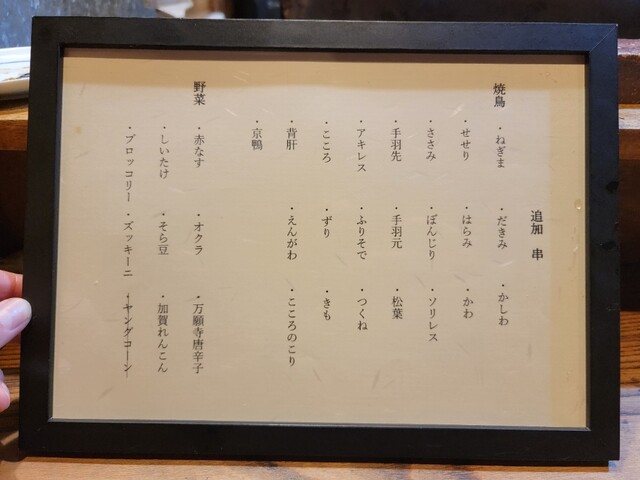 追加 串
焼鳥
・ねぎま ・だきみ ・かしわ
・せせり ・はらみ ・かわ
・ささみ ・ぼんじり ・ソリレス
・手羽先 ・手羽元 ・松葉
・アキレス ・ふりそで ・つくね
・こころ ・ずり ・きも
・背肝 ・えんがわ ・こころのこり
・京鴨
野菜
・赤なす ・オクラ ・万願寺唐辛子
・しいたけ ・そら豆 ・加賀れんこん
・ブロッコリー ・ズッキーニ ・ヤングコーン